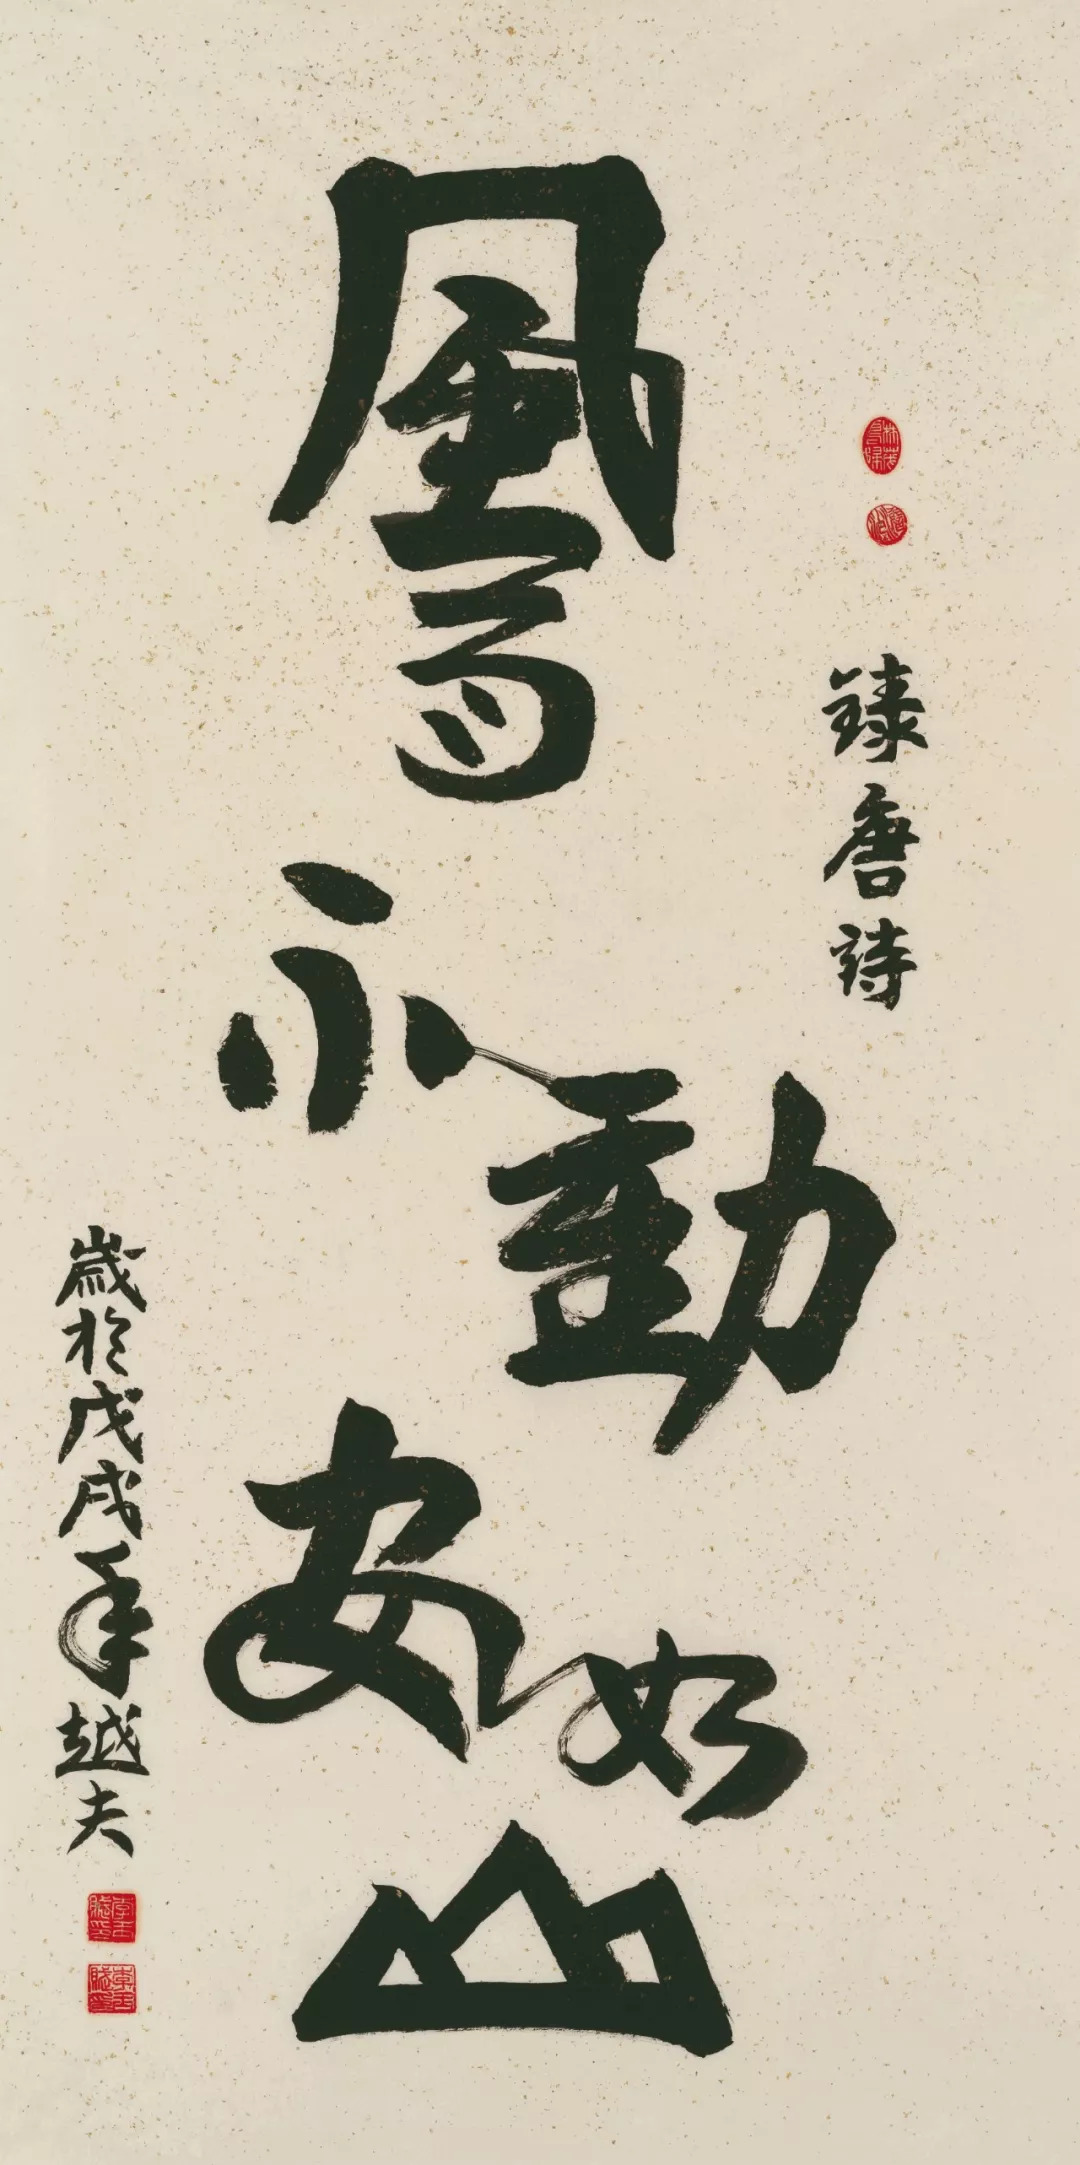 錄唐詩
風雨不動安如山
歲於戊戌年越夫